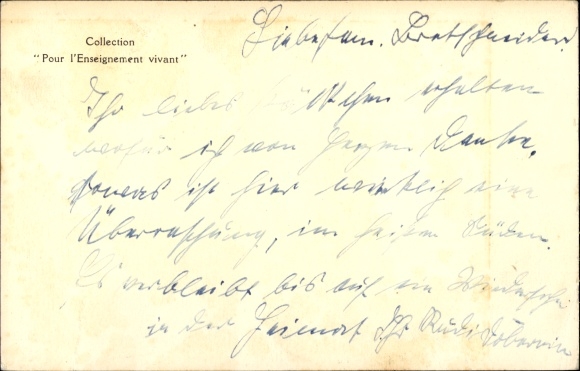 Collection
"Pour l'Enseignement vivant"
Liebe Fam. Bretschneider.
Ihr liebes erhalten
wofür ich von Herzen danke.
sowas ist hier wirklich eine
Überraschung, im heißen Süden.
Es verbleibt bis auf ein Wiedersehn
in der Heimat Ihr Rudi